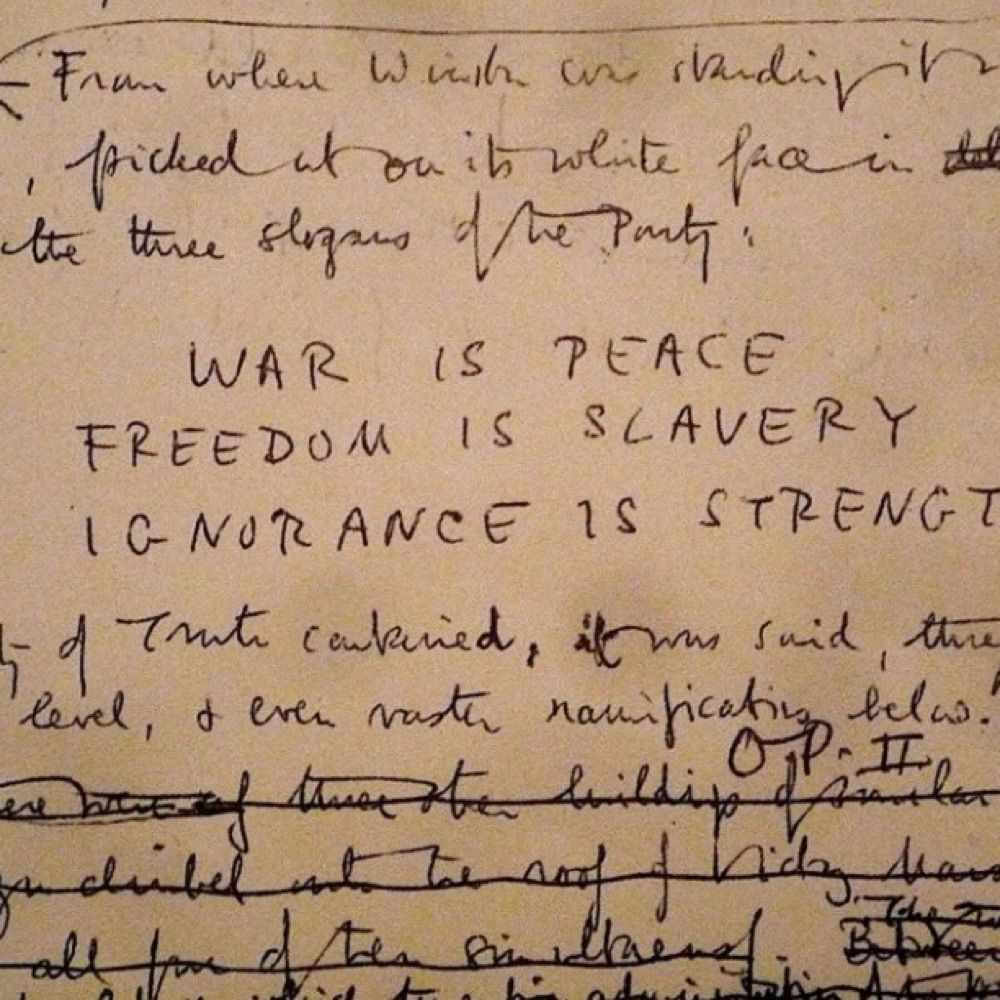 From where Winston was standing it
, picked out on its white face in
the three slogans of the Party :
WAR IS PEACE
FREEDOM IS SLAVERY
IGNORANCE IS STRENGT
of Truth contained, it was said, three
level, & even vaster ramifications below.
O.P. II
were of three other buildings of similar
climbed onto the roof of
all four of them simultaneously. Between